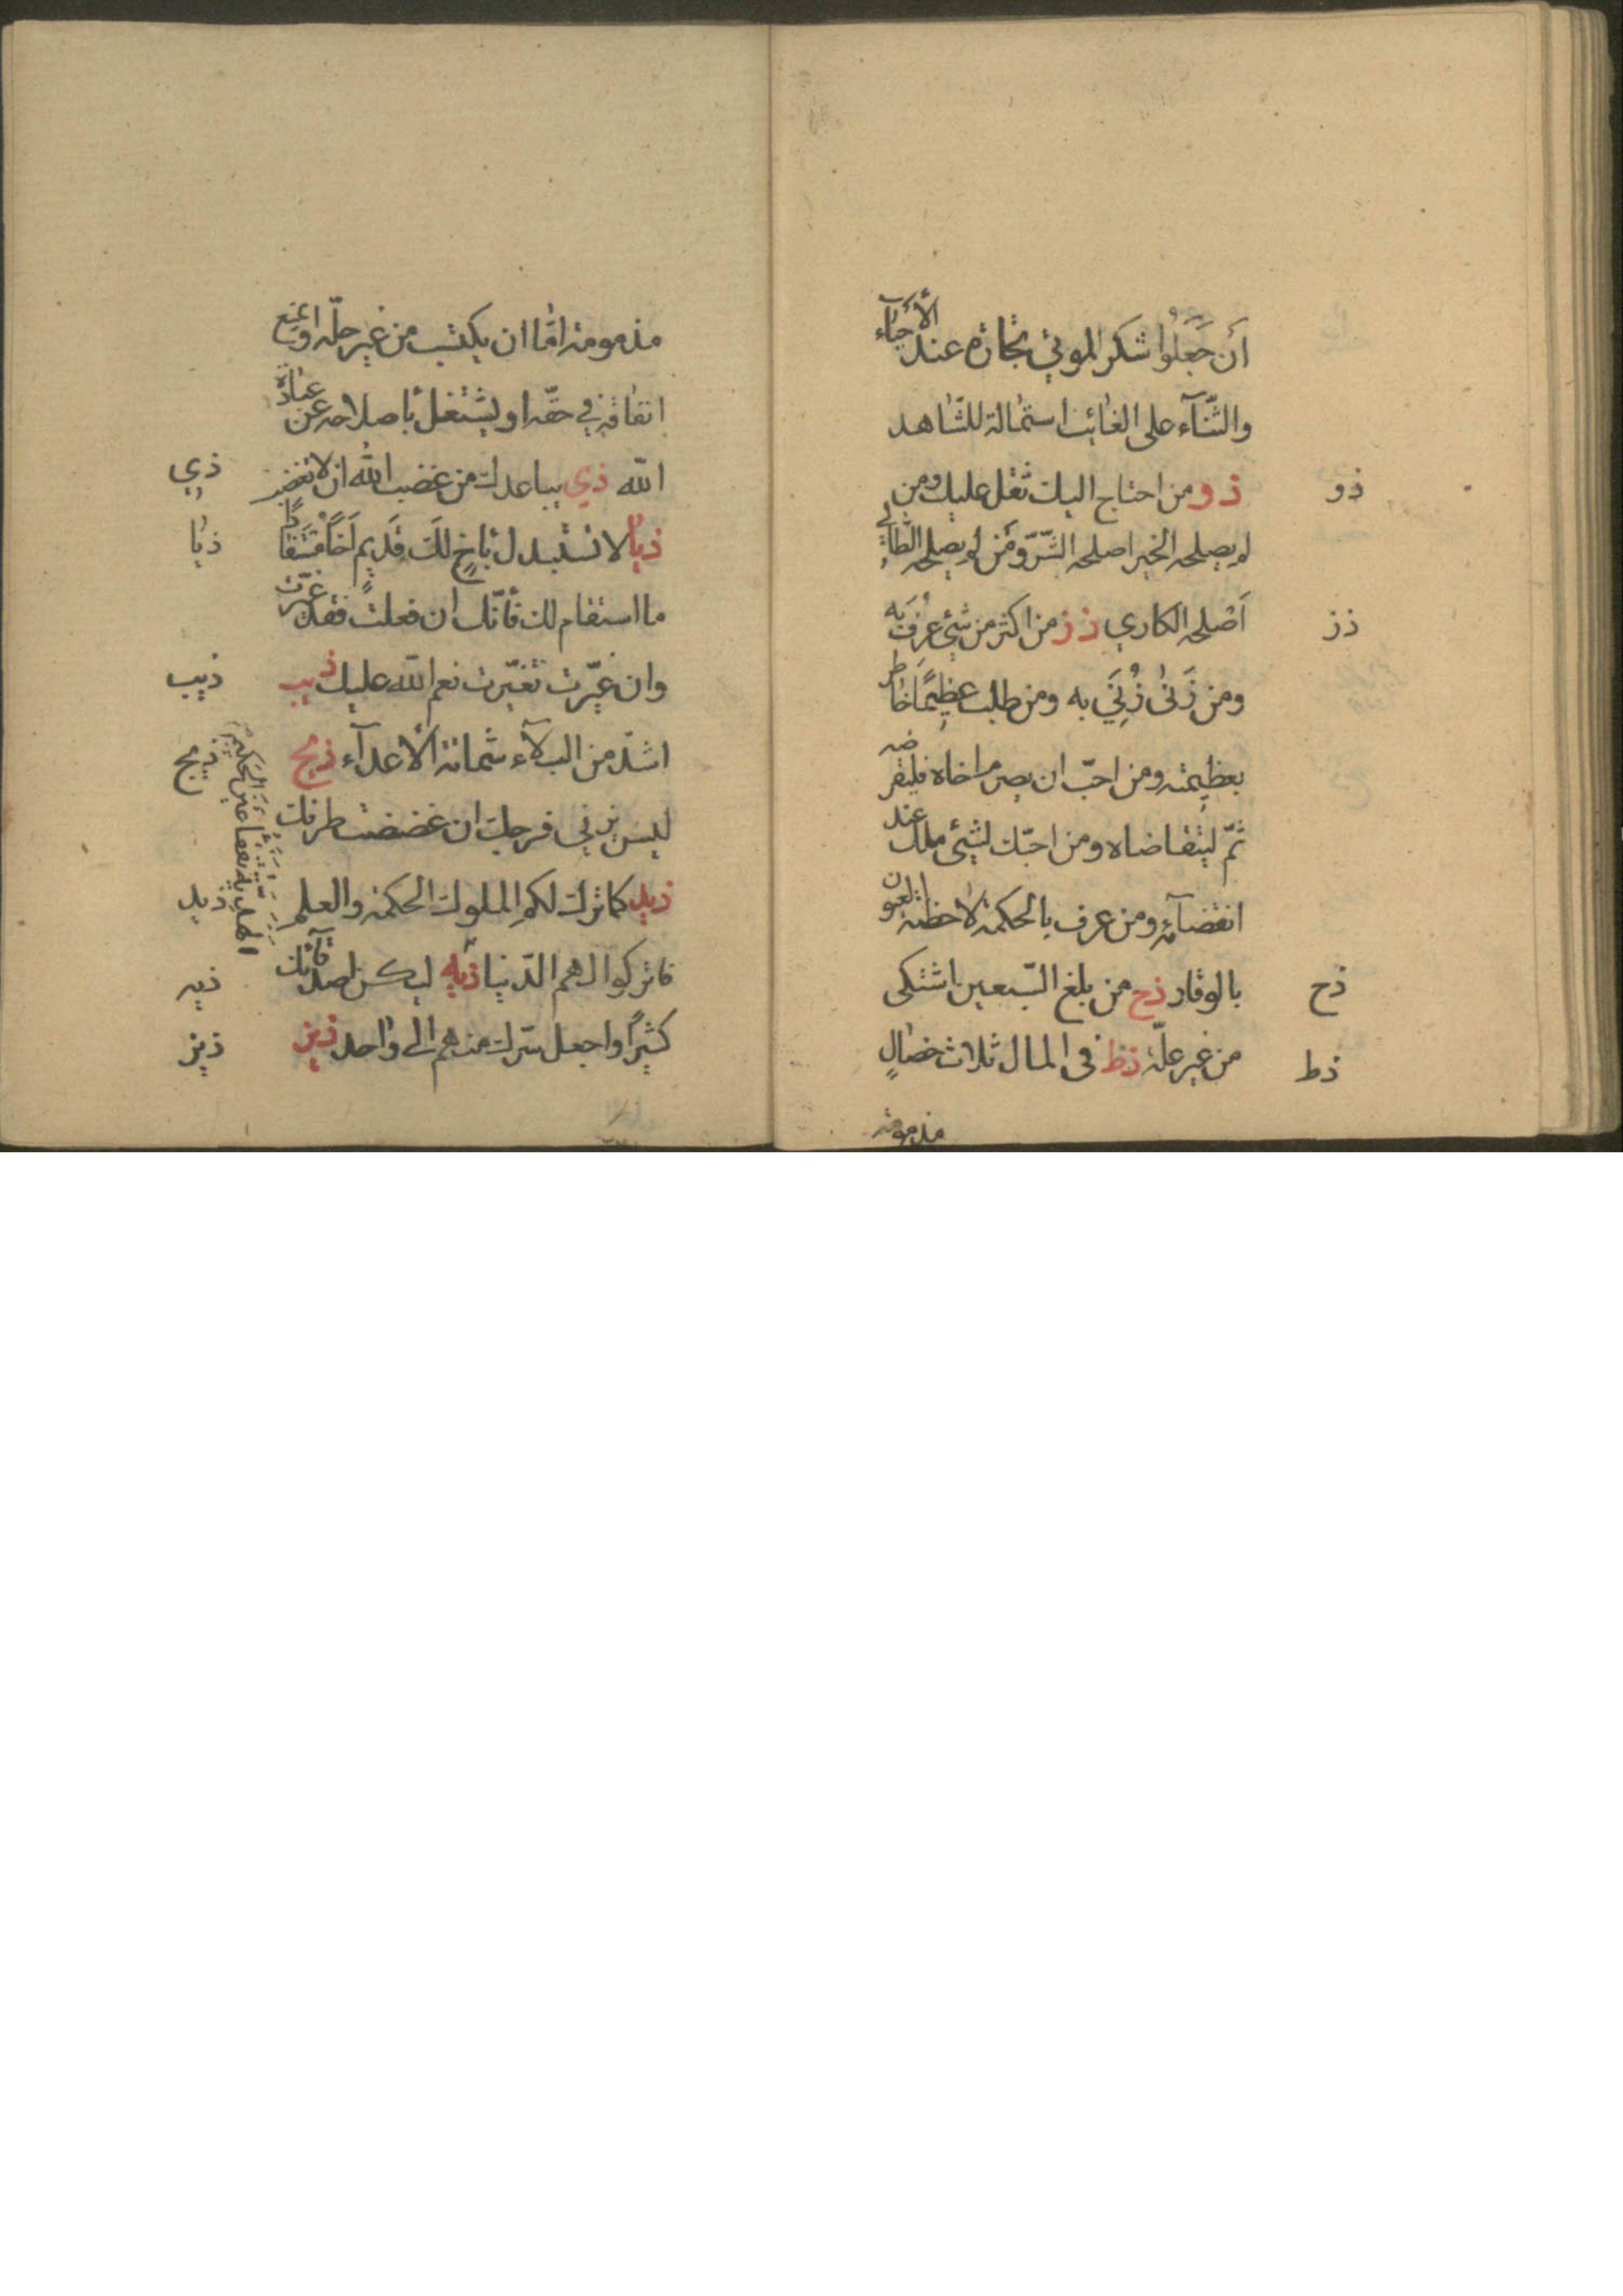 أن جَعَلُوا شكر الموتى تجارة عند الأحيآء
والثّنآء على الغائب استمالة للشّاهد
ذو ذو من احتاج اليك ثقل عليك ومن
لم يصلحه الخير اصلحه الشّرّ ومَن لم يصلحه الطّالي
أصْلحه الكاوي ذز من اكثر من شيءٍ عُرِفَ به
ذز
ومن زَنىٰ زُنِيَ به ومن طلب عظيمًا خاطر
بعظيمته ومن احبّ ان يصرم اخاه فليقرضه
ثمّ ليتقاضاه ومن احبّك لشيء ملّك عند
انقضآئه ومن عرف بالحكمة لاحظته العيون
بالوقار ذح من بلغ السّبعين اشتكى
ذح
من غير علّة ذط في المال ثلاث خصالٍ
ذط
مذمومة
مذمومة امّا ان يكتسب من غير حلّه او يمنع
انفاقه في حقّه او يشتغل باصلاحه عن عبادة
الله ذي يباعدك من غضب الله ان لا تغضب
ذي
ذيا لا تستبدلنّ باخٍ لكَ قديم اخًا مستفادًا
ذيا
ما استقام لك فأنّك ان فعلت فقد غيّرت
وان غيّرت تغيّرت نعم الله عليك ذيب
ذيب
اشدّ من البلآء شماتة الأعدآء ذيج
ذيج
ليس يزني فرجك ان غضضت طرفك
ذيد كما ترك لكم الملوك الحكمة والعلم
ذيد
فاتركوا لهم الدّنيا ذيه ليكن اصدقآئك
ذيه
كثيرًا واجعل سّرك منهم الى واحد ذيز
ذيز